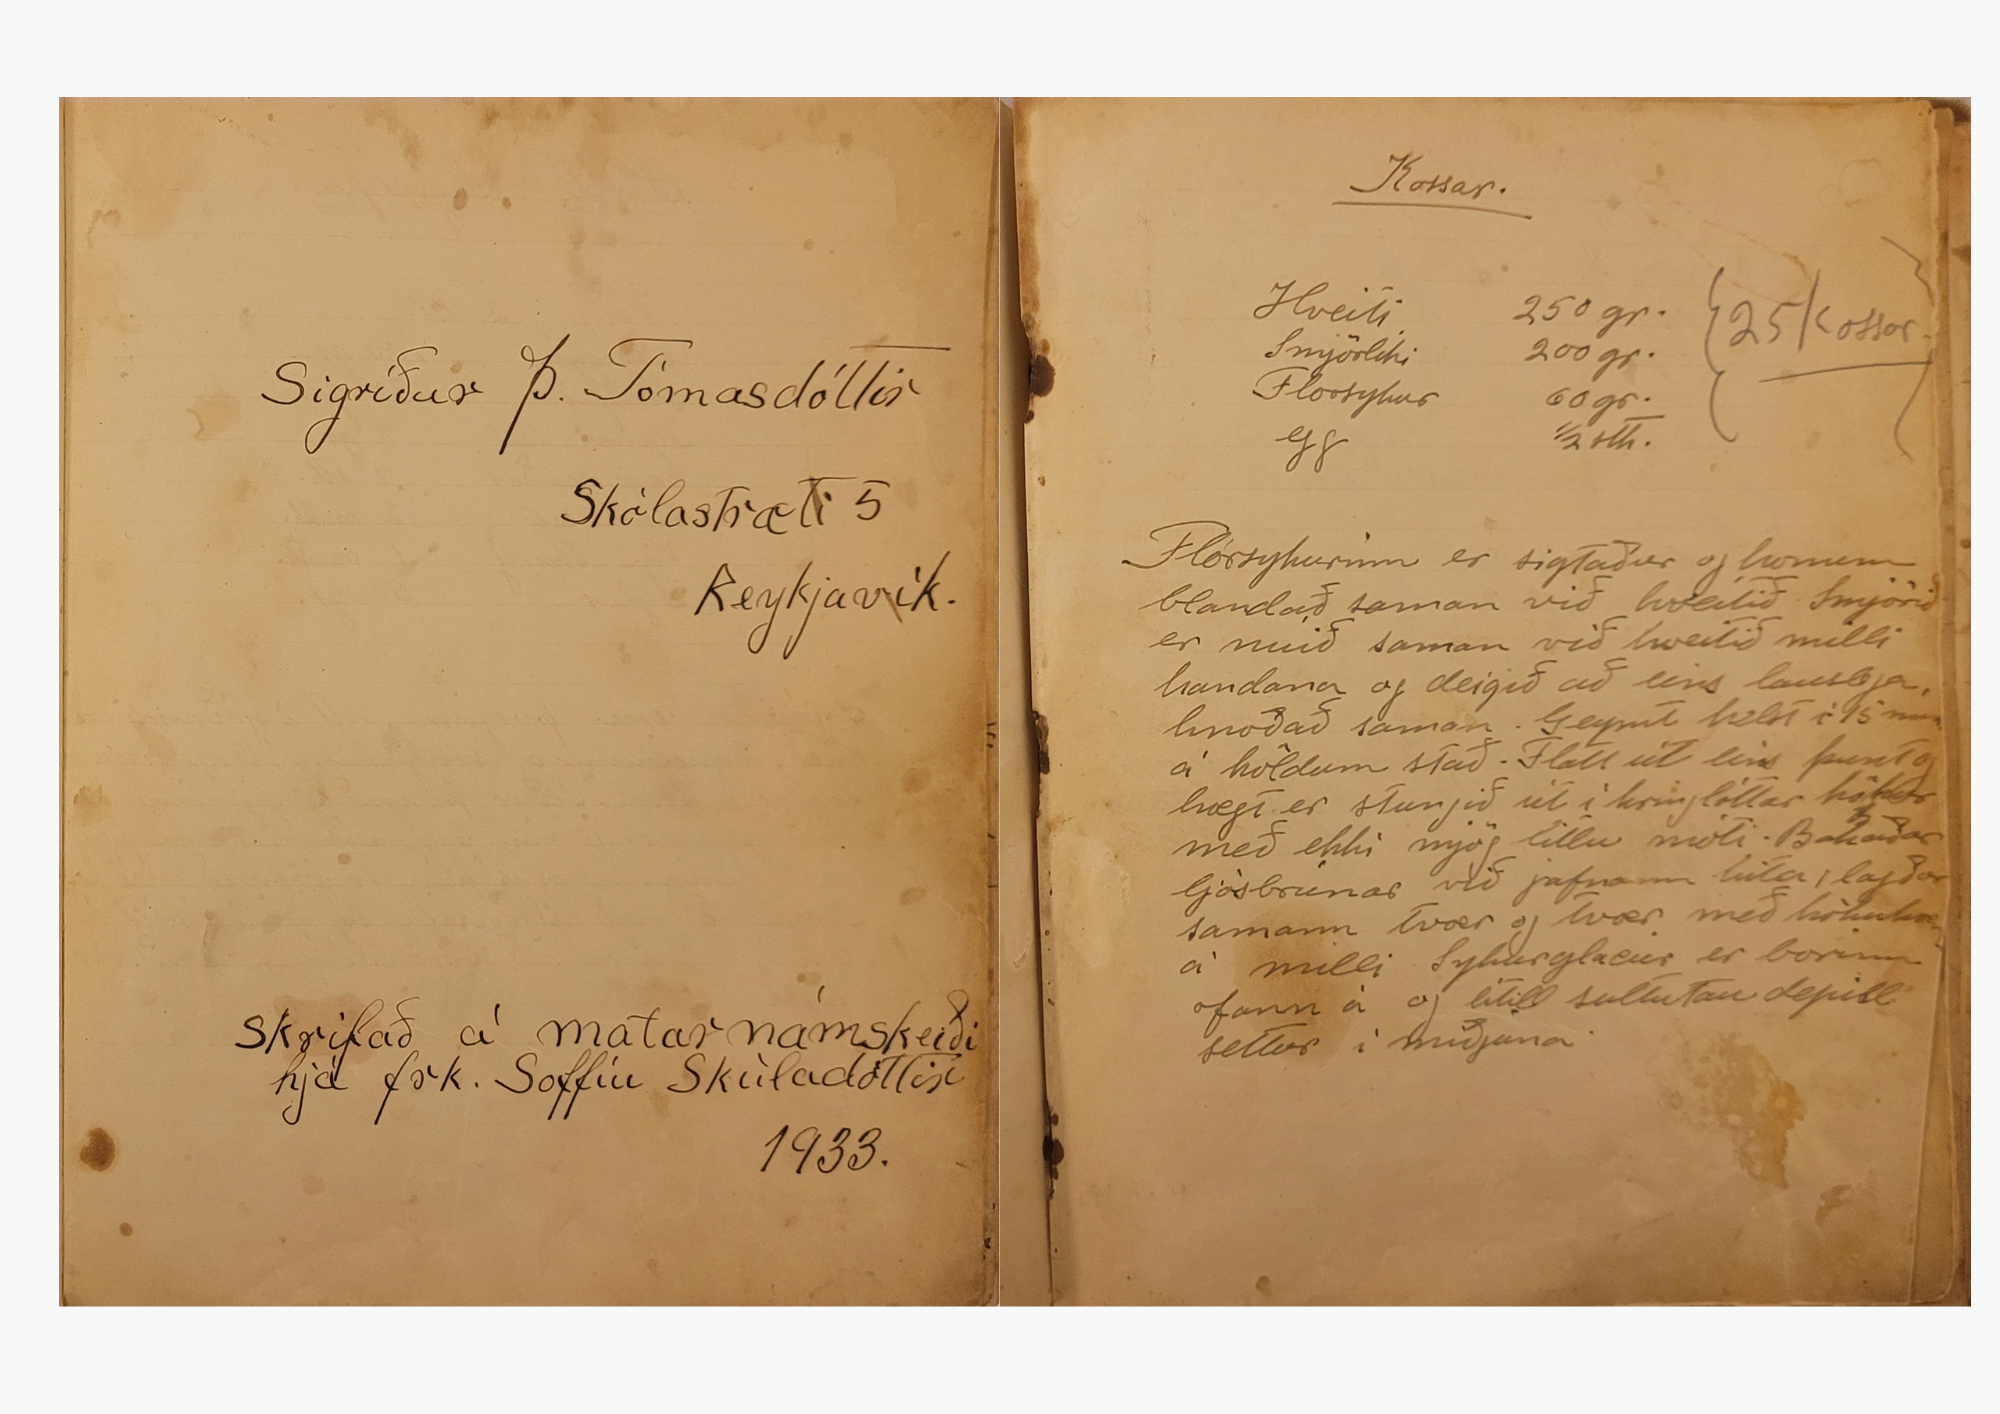 Sigríður Þ. Tómasdóttir
Skólastræti 5
Reykjavík.
Skrifað á matarnámskeiði
hjá frk. Soffíu Skúladóttir
1933.
Kossar.
Hveiti 250 gr.
Smjörlíki 200 gr.
Florsykur 60 gr.
egg 1/2 stk.
25 Kossar.
Flórsykurinn er sigtaður og honum
blandað saman við hveitið. Smjörið
er núið saman við hveitið milli
handana og deigið að eins lauslega,
hnoðað saman. Geymt helst í 15
á köldum stað. Flatt út eins þunt og
hægt er stungið út í kringlóttar kökur
með ekki mjög litlu móti. Bakaðar
ljósbrúnar við jafnann hita, lagðar
samann tvær og tvær með
á milli Sykurglacúr er borinn
ofann á og lítill sultutau depill
settur í miðjuna.